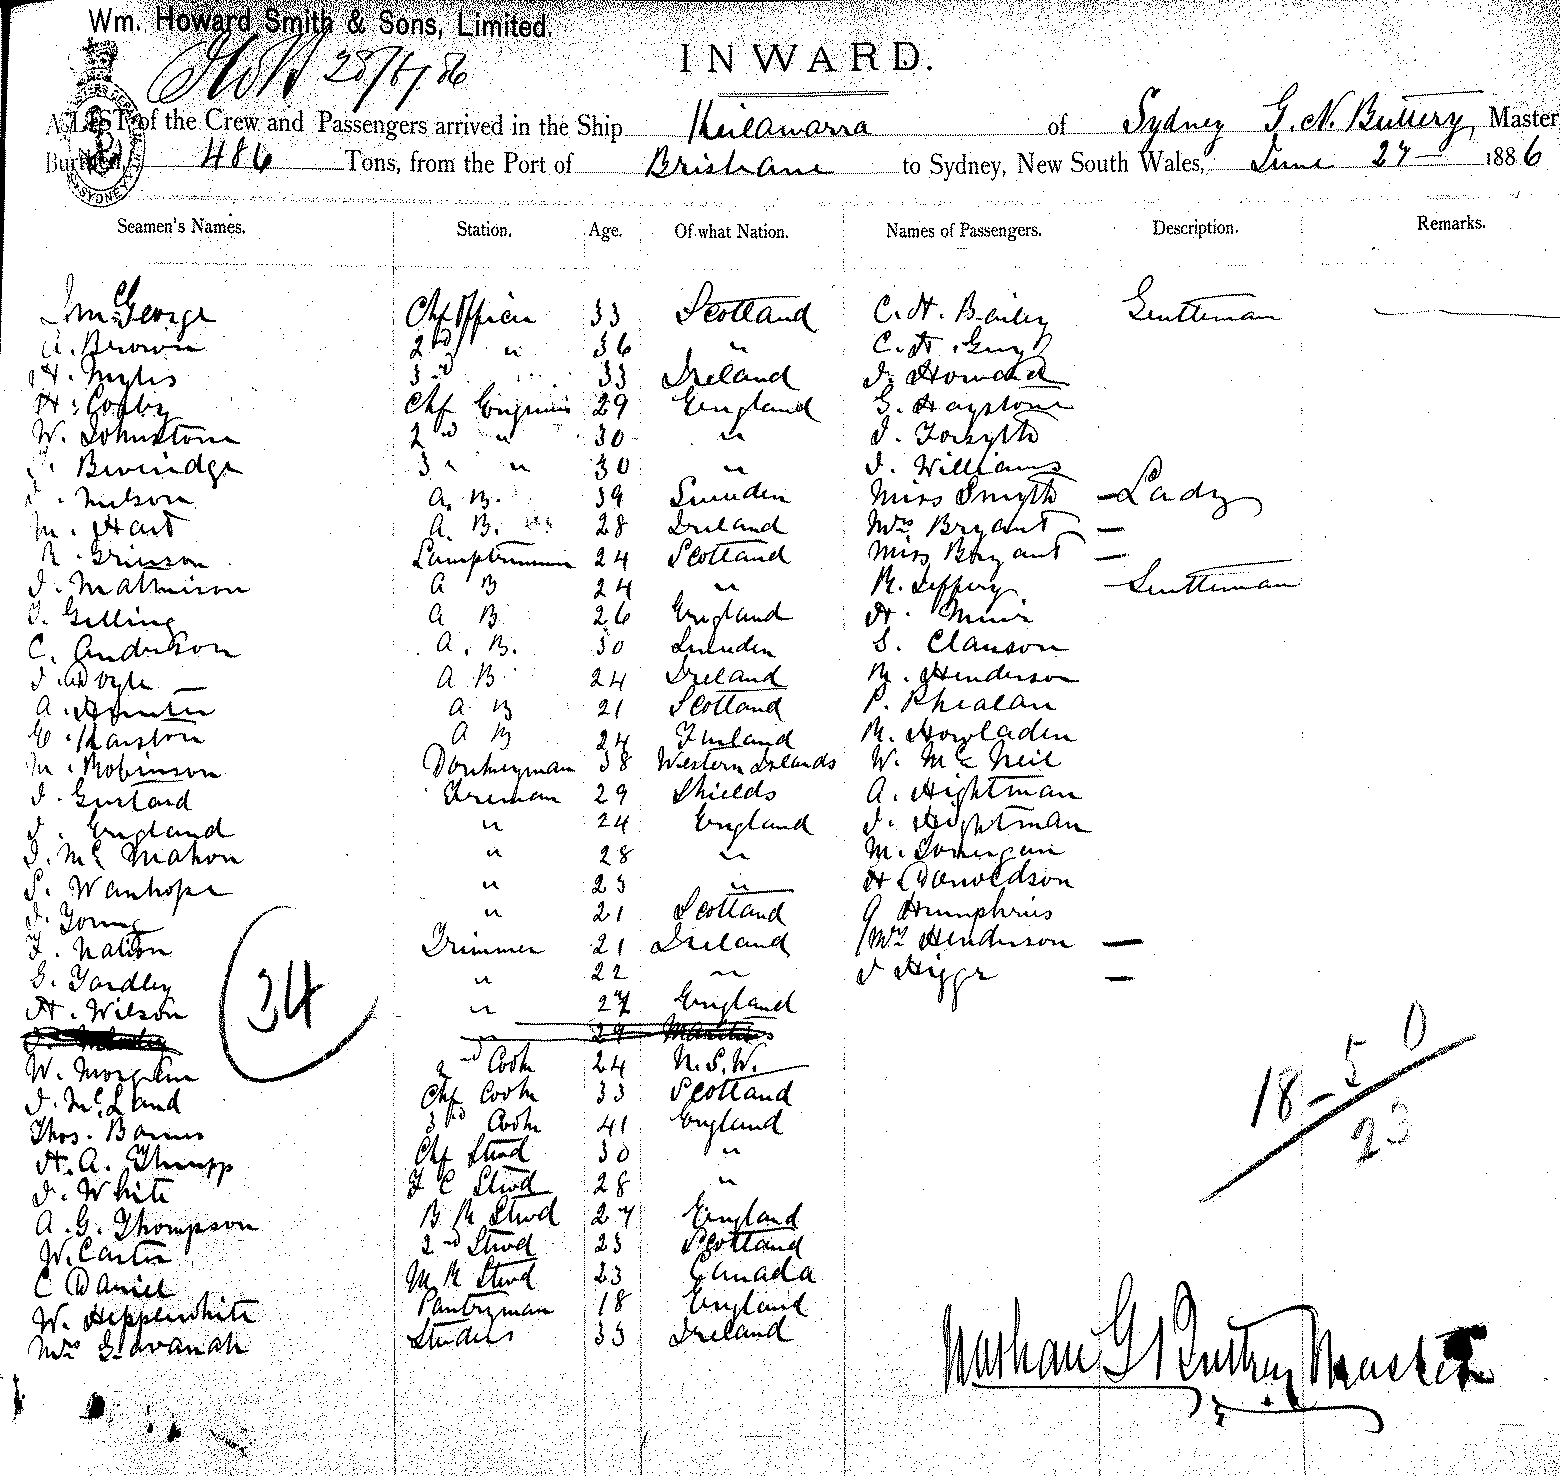 Wm. Howard Smith & Sons, Limited.
28/6/86
INWARD.
A LIST of the Crew and Passengers arrived in the Ship Keilawarra of Sydney G. N. Buttrey, Master
Burthen, 486 Tons, from the Port of Brisbane to Sydney, New South Wales, June 27 1886
Seamen's Names. Station. Age. Of what Nation. Names of Passengers. Description. Remarks.
McGeorge Chf Officer 33 Scotland C. H. Bailey Gentleman
A. Brown 2nd " 36 " C. H. Guy
H. Myles 3rd " 33 Ireland J. Howard
H. Corby Chf Engineer 29 England G. Haystone
W. Johnstone 2nd " 30 " J. Forsyth
Beveridge 3 " " 30 " J. Williams
Nelson A. B. 39 Sweden Miss Smyth — Lady
M. Hart A. B. 28 Ireland Mrs Bryant —
R. Grierson Lamptrimmer 24 Scotland Miss Bryant —
J. Mathieson A B 24 " R. Jeffery Gentleman
J. Gelling A B 26 England H. Muir
C. Anderson A. B. 30 Sweden S. Clauson
J. Doyle A B 24 Ireland R. Henderson
A. Hunter A B 21 Scotland P. Phealan
A B 24 Finland R. Howladen
M. Robinson Donkeyman 38 Western Islands W. McNeil
J. Fireman 29 Shields A. Hightman
J. England " 24 England J. Hightman
J. McMahon " 28 " M. Lonergan
S. Wanhope " 23 " H. Donoldson
J. Young " 21 Scotland A Humphries
Trimmer 21 Ireland Mrs Henderson —
G. Yardley " 22 " J Higgs —
H. Wilson " 27 England
34
" 29
W. 2nd Cook 24 N. S. W.
J. McLand Chf Cook 33 Scotland
Thos. Barnes 3rd Cook 41 England
H. A. Thrupp Chf Stwd 30 "
J. White F C Stwd 28 "
A. G. Thompson B R Stwd 27 England
W. Carter 2nd Stwd 23 Scotland
C Daniel M R Stwd 23 Canada
W. Hepplewhite Pantryman 18 England
Mrs Gavanah Stwdess 33 Ireland
18 - 5 0
23
Nathan G Buttrey Master